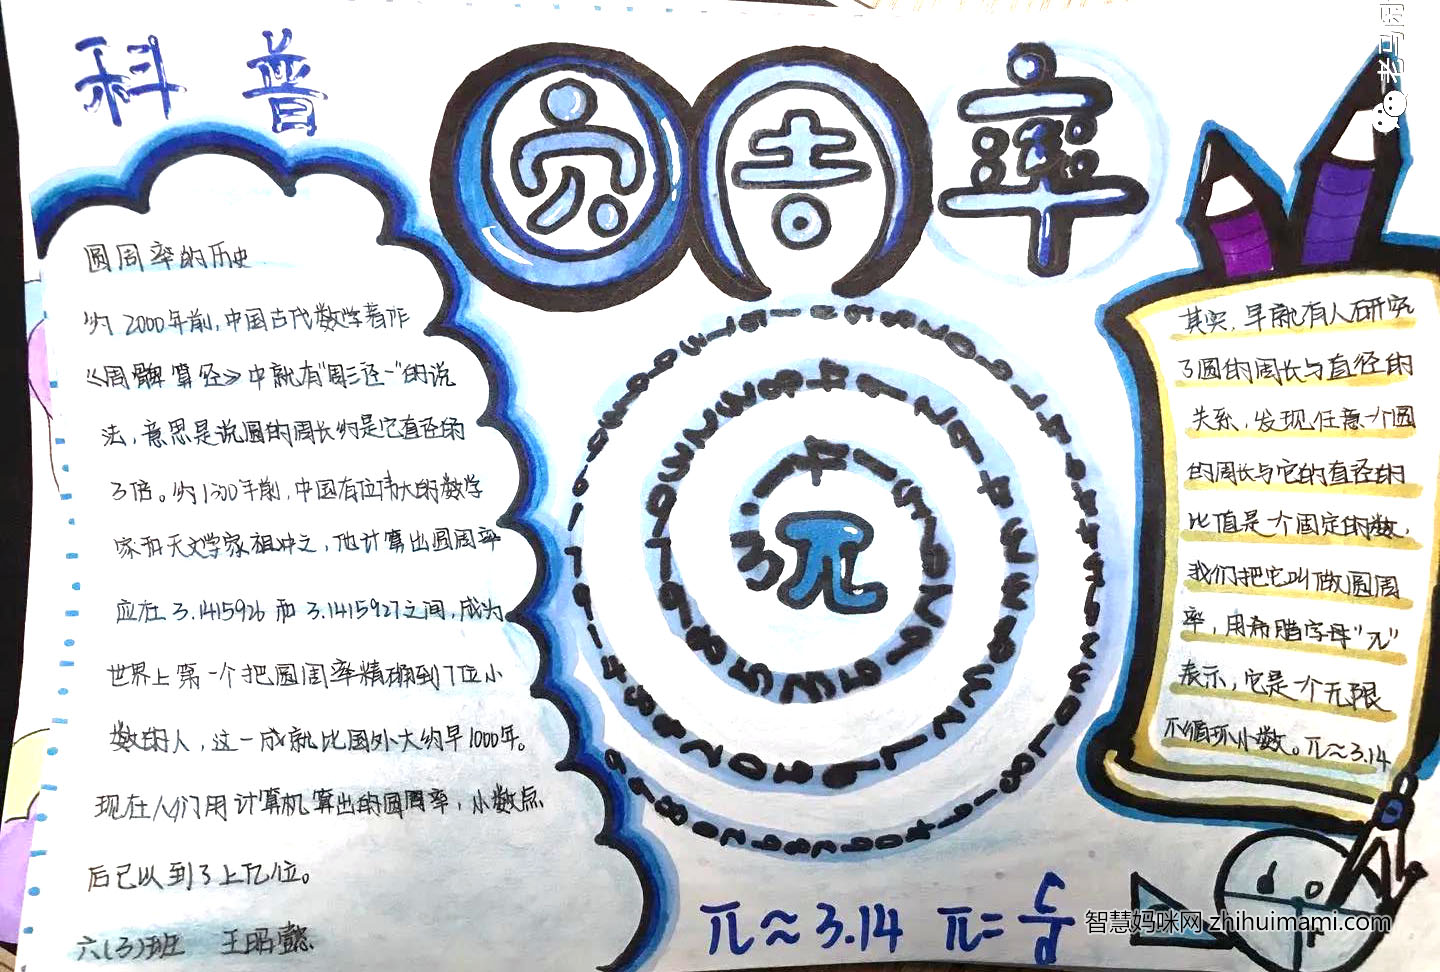 科普
圆周率
圆周率的历史
约2000年前,中国古代数学著作
《周髀算径》中就有"周三径一"的说
法,意思是说圆的周长约是它直径的
3倍。约1500年前,中国有位伟大的数学
家和天文学家祖冲之,他计算出圆周率
应在3.1415926和3.1415927之间,成为
世界上第一个把圆周率精确到7位小
数的人,这一成就比国外大约早1000年。
现在人们用计算机算出的圆周率,小数点
后已以到了上亿位。
六(3)班
其实,早就有人研究
了圆的周长与直径的
关系,发现任意一个圆
的周长与它的直径的
比值是一个固定的数,
我们把它叫做圆周
率,用希腊字母"π"
表示,它是一个无限
不循环小数。π≈3.14
π
π≈3.14 π=c/d
d o r
老马网
智慧妈咪网 zhihuimami.com